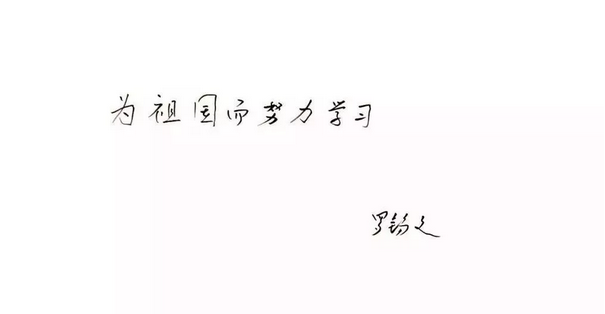 为祖国而努力学习
罗锡文